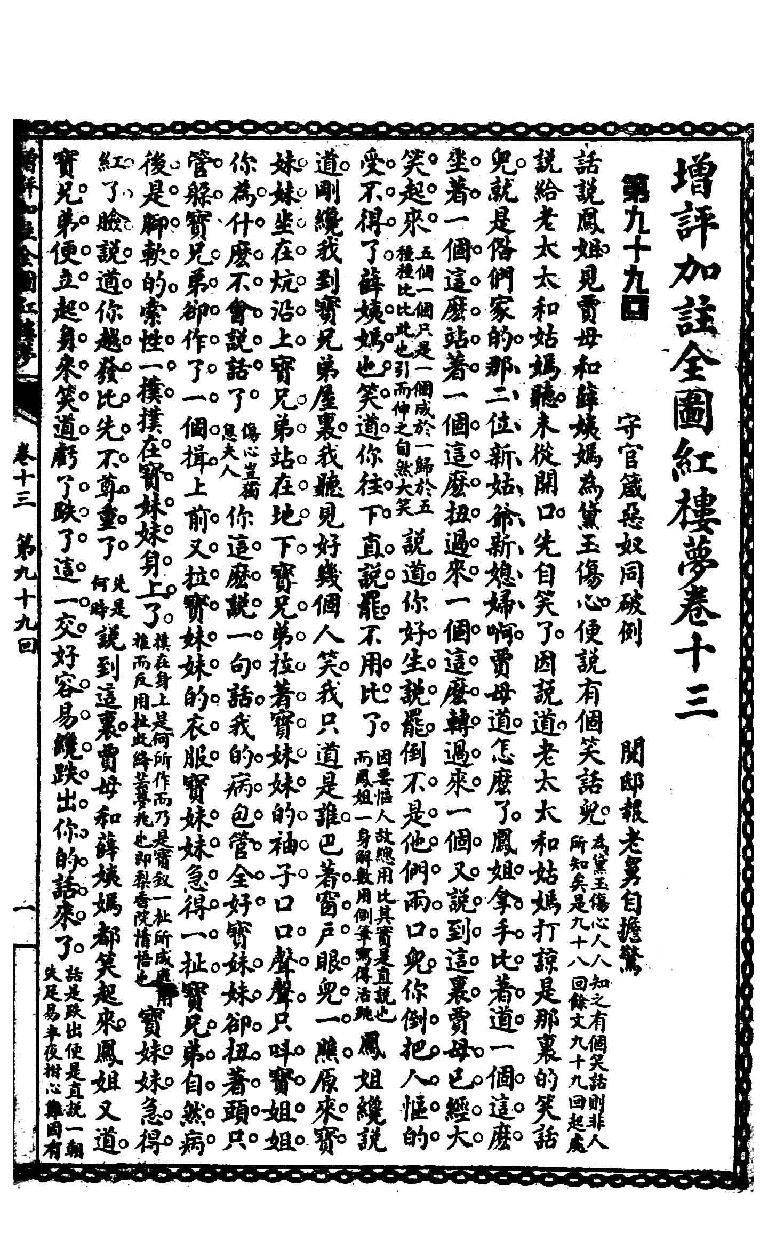 增評加註全圖紅樓夢卷十三
第九十九回 守官箴惡奴同破例 閱邸報老舅自擔驚
話說鳳姐見賈母和薛姨媽為黛玉傷心便說有個笑話兒為黛玉傷心人人知之有個笑話則非人所知矣是九十八回餘文九十九回起處
說給老太太和姑媽聽未從開口先自笑了因說道老太太和姑媽打諒是那裏的笑話
兒就是偺們家的那二位新姑爺新媳婦啊賈母道怎麼了鳳姐拿手比著道一個這麼
坐著一個這麼站著一個這麼扭過來一個這麼轉過來一個又說到這裏賈母已經大
笑起來五個一個只是一個成於一歸於五種種比比此也引而伸之自然大笑說道你好生說罷倒不是他們兩口兒你倒把人慪的
受不得了薛姨媽也笑道你往下直說罷不用比了因要慪人故總用比其實是直說也而鳳姐一身解數用倒筆寫得活跳鳳姐纔說
道剛纔我到寶兄弟屋裏我聽見好幾個人笑我只道是誰巴著窗戶眼兒一瞧原來寶
妹妹坐在炕沿上寶兄弟站在地下寶兄弟拉著寶妹妹的袖子口口聲聲只叫寶姐姐
你為什麼不會說話了傷心豈獨息夫人你這麼說一句話我的病包管全好寶妹妹卻扭著頭只
管躲寶兄弟卻作了一個揖上前又拉寶妹妹的衣服寶妹妹急得一扯寶兄弟自然病
後是腳軟的索性一撲撲在寶妹妹身上了撲在身上是何所作而乃是寶釵一扯所成應推而反用扯此絳芸夢兆也即梨香院情悟也寶妹妹急得
紅了臉說道你越發比先不尊重了先是何時說到這裏賈母和薛姨媽都笑起來鳳姐又道
寶兄弟便立起身來笑道虧了跌了這一交好容易纔跌出你的話來了話是跌出便是直說一朝失足易半夜捫心難固有
增評加註全圖紅樓夢 卷十三 第九十九回 一